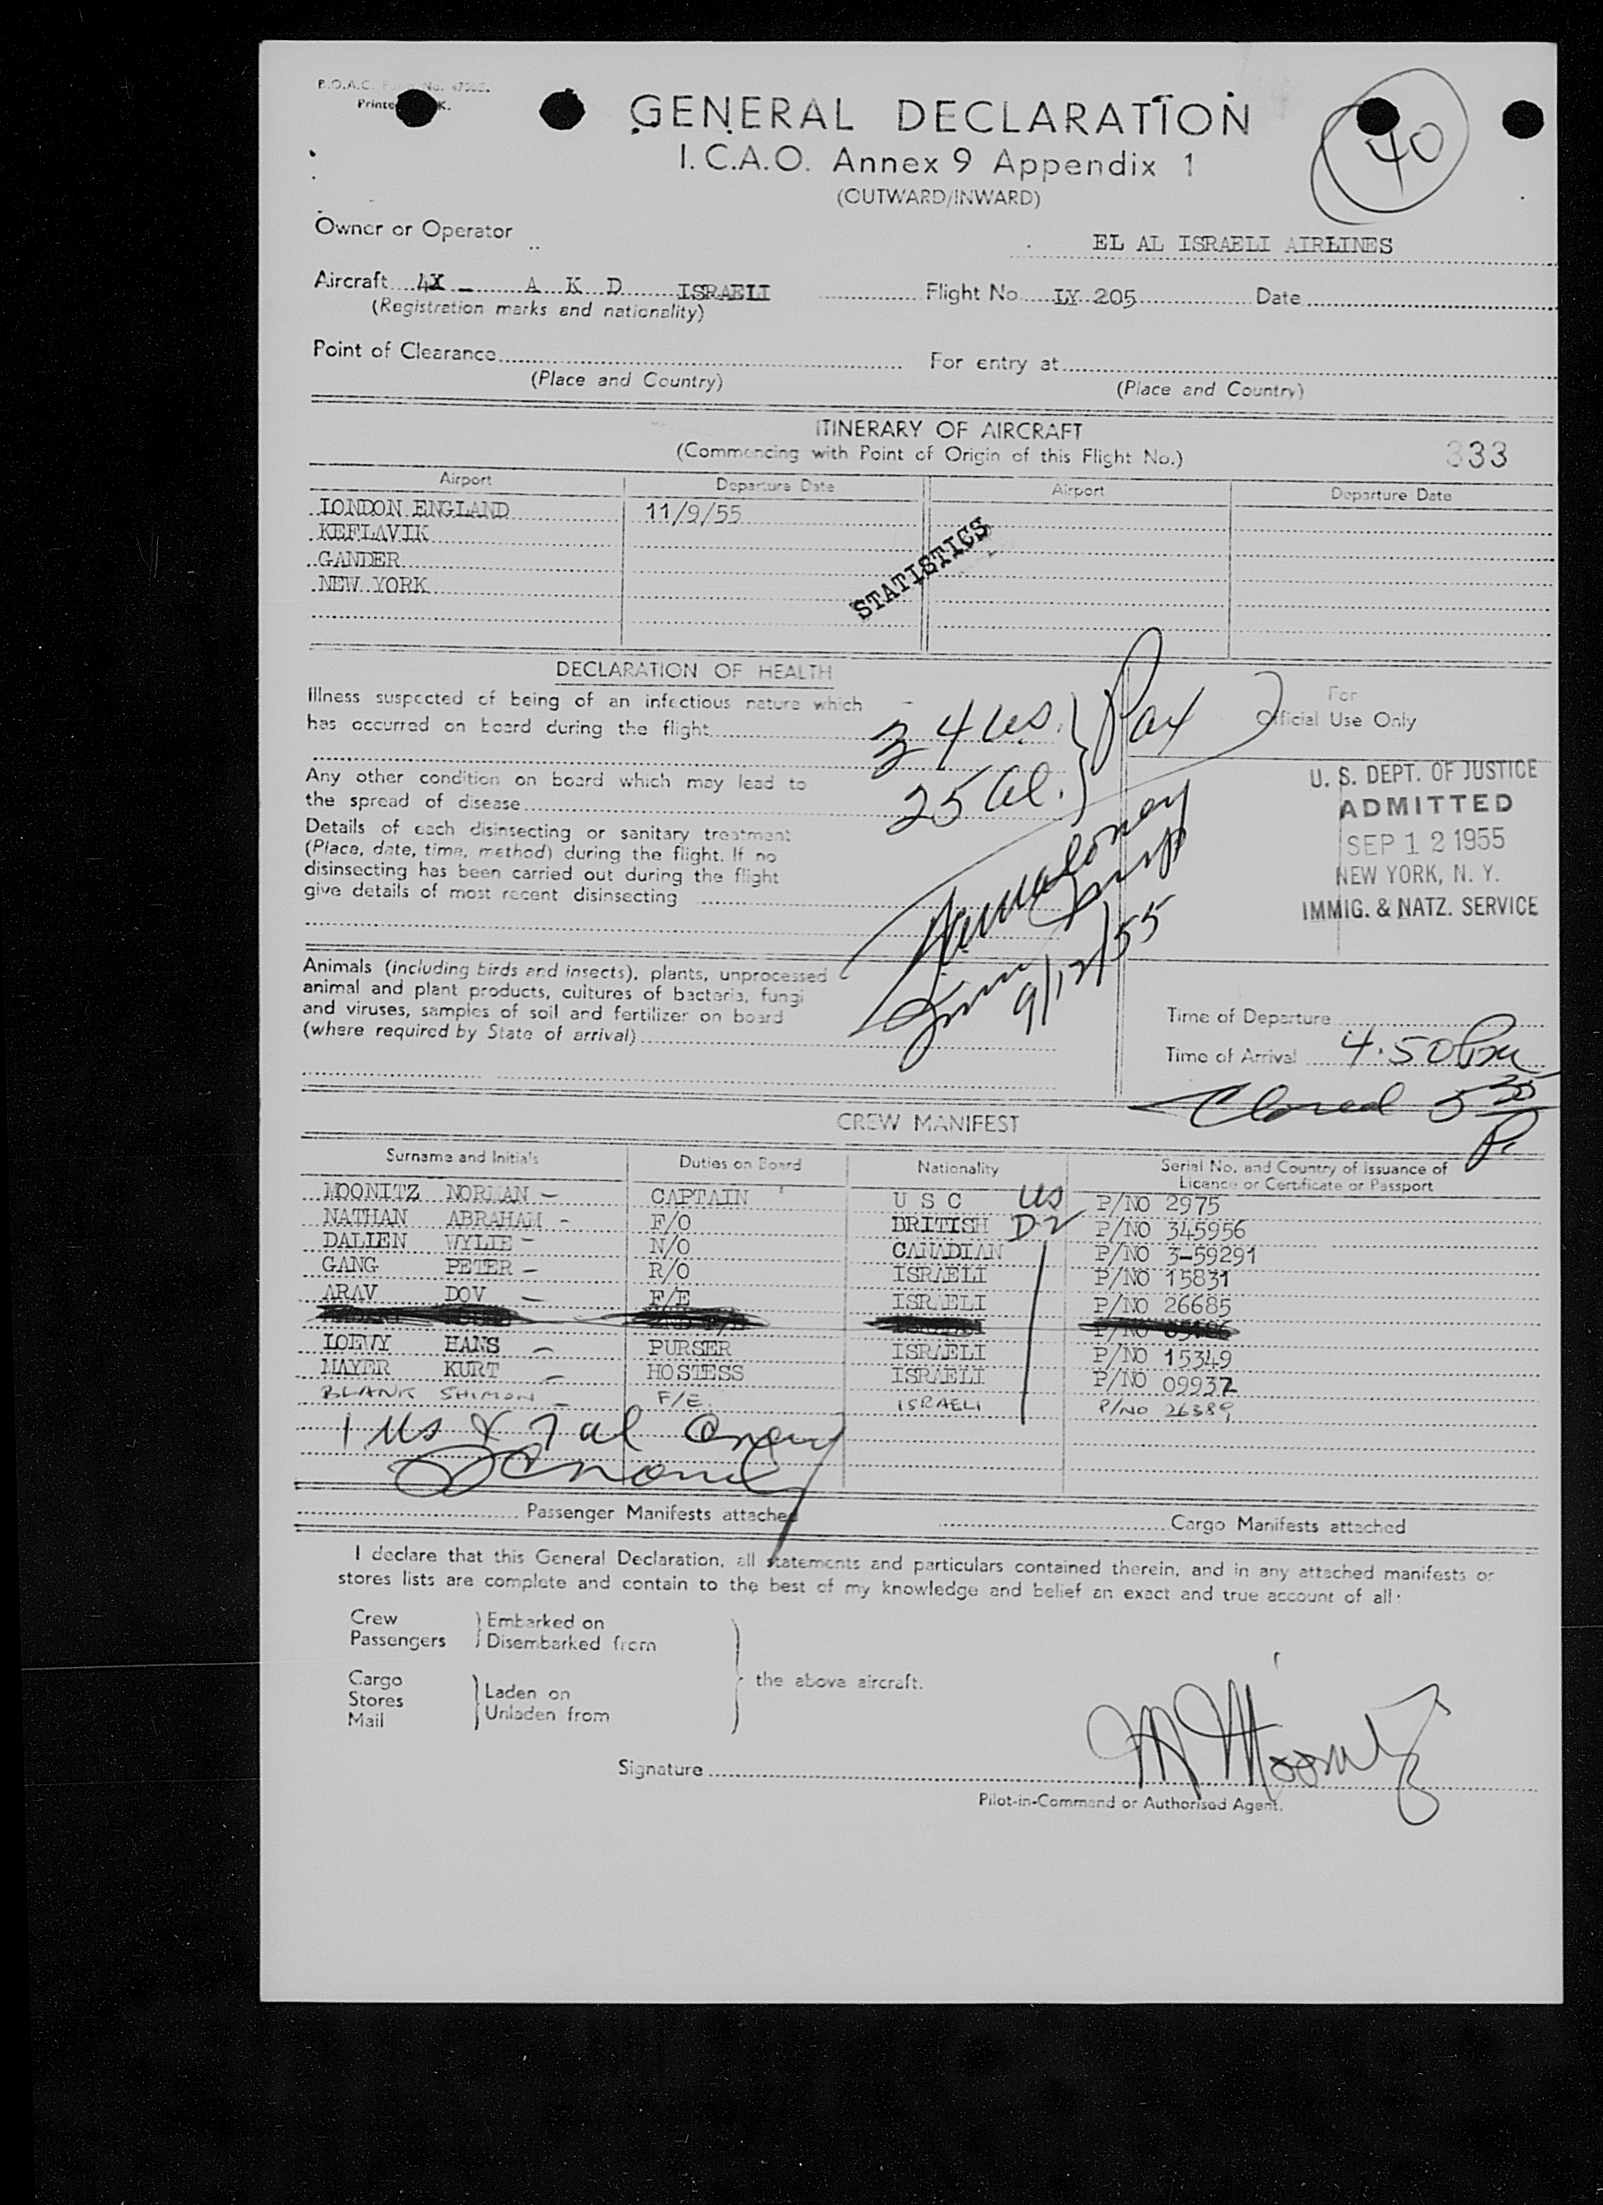 B.O.A.C.
GENERAL DECLARATION
I.C.A.O. Annex 9 Appendix 1
(OUTWARD/INWARD)
40
Owner or Operator EL AL ISRAELI AIRLINES
Aircraft 4X - A K D ISRAELI Flight No. LY 205 Date
(Registration marks and nationality)
Point of Clearance For entry at
(Place and Country) (Place and Country)
ITINERARY OF AIRCRAFT
(Commencing with Point of Origin of this Flight No.)
333
Airport Departure Date Airport Departure Date
LONDON ENGLAND 11/9/55
KEFLAVIK
GANDER
NEW YORK
STATISTICS
DECLARATION OF HEALTH
Illness suspected of being of an infectious nature which
has occurred on board during the flight
34 US. } Pax
25 al.
For
Official Use Only
Any other condition on board which may lead to
the spread of disease
Details of each disinsecting or sanitary treatment
(Place, date, time, method) during the flight. If no
disinsecting has been carried out during the flight
give details of most recent disinsecting
U. S. DEPT. OF JUSTICE
ADMITTED
SEP 12 1955
NEW YORK, N. Y.
IMMIG. & NATZ. SERVICE
9/12/55
Animals (including birds and insects), plants, unprocessed
animal and plant products, cultures of bacteria, fungi
and viruses, samples of soil and fertilizer on board
(where required by State of arrival)
Time of Departure
Time of Arrival 4.50 Pm
Closed 5 35
CREW MANIFEST
Surname and Initials Duties on Board Nationality Serial No. and Country of Issuance of
Licence or Certificate or Passport
MOONITZ NORMAN - CAPTAIN U S C US P/NO 2975
NATHAN ABRAHAM - F/O BRITISH D-2 P/NO 345956
DALIEN WYLIE - N/O CANADIAN P/NO 3-59291
GANG PETER - R/O ISRAELI P/NO 15831
ARAV DOV - F/E ISRAELI P/NO 26685
LOEWY HANS - PURSER ISRAELI P/NO 15349
MAYER KURT - HOSTESS ISRAELI P/NO 09937
BLANK SHIMON - F/E ISRAELI P/NO 26389
1 US & 7 al
Passenger Manifests attached Cargo Manifests attached
I declare that this General Declaration, all statements and particulars contained therein, and in any attached manifests or
stores lists are complete and contain to the best of my knowledge and belief an exact and true account of all:
Crew } Embarked on
Passengers } Disembarked from
the above aircraft.
Cargo
Stores } Laden on
Mail } Unladen from
Signature N Moonitz
Pilot-in-Command or Authorised Agent.